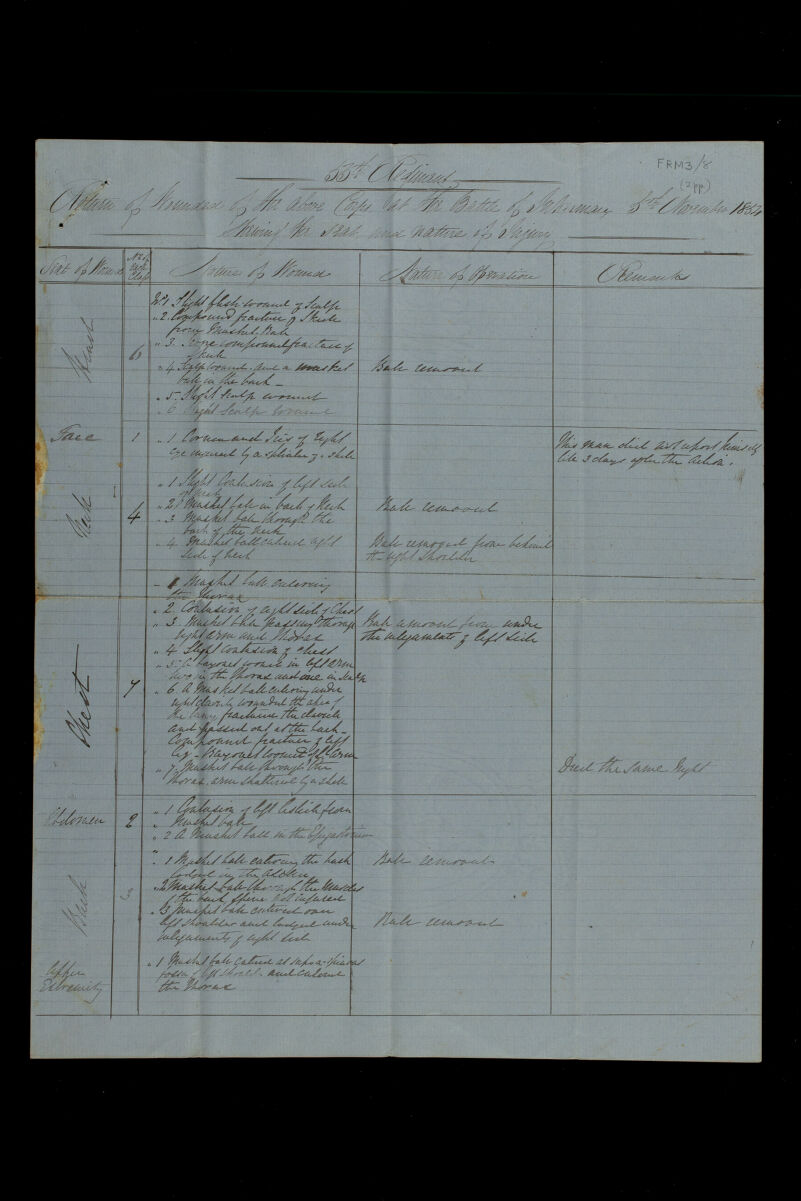 FRM3/8
(2pp)
55th Regiment
Return of Wounded of the above Corps at the Battle of Inkerman 5th November 1854
Shewing the Seat and nature of Injury
Seat of Wound
No of each Class
Nature of Wound
Nature of Operation
Remarks
Head
6
No 1 Slight flesh wound of Scalp
" 2 Compound fracture of Skull
from Musket Ball
" 3 compound fracture of
Skull
" 4 Scalp wound and a musket
ball in the back
Ball removed
" 5 Slight Scalp wound
" 6 Slight Scalp wound
Face
1
" 1 Cornea and Iris of right
eye injured by a splinter of a shell
This man did not report himself
till 3 days after the Action.
Neck
4
" 1 Slight Contusion of left side
of neck
" 2 Musket ball in back of Neck
Ball removed
" 3 Musket ball through the
back of the neck
" 4 Musket ball entered right
side of neck
Ball removed from behind
the right shoulder
Chest
7
" 1 Musket ball entering
the Thorax
" 2 Contusion of right side of Chest
" 3 Musket ball passing through
right arm and Thorax
Ball removed from under
the integuments of left side
" 4 Slight Contusion of chest
" 5 bayonet wound in left arm
two in the Thorax and one in
" 6 A Musket ball entering under
right clavicle wounded the apex of
the lung, fractured the clavicle
and passed out at the back
Compound fracture of left
leg - Bayonet wound of arm
" 7 Musket ball through the
Thorax, arm shattered by a shell
Died the same Night
Abdomen
2
" 1 Contusion of left from
Musket ball
" 2 A Musket ball in the Epigastrium
Back
3
" 1 Musket ball entering the back
lodged in the
Ball removed
" 2 Musket ball through the Muscles
of the back, spine not injured
" 3 Musket ball entered over
left shoulder and lodged under
integuments of right side
Ball removed
Upper
Extremity
" 1 Musket ball entered at supra-spinous
fossa of left shoulder and entered
the Thorax